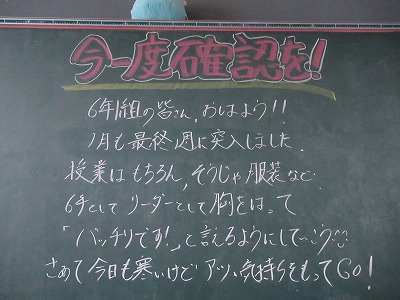 今一度確認を!
6年1組の皆さん、おはよう!!
1月も最終週に突入しました.
授業はもちろん、そうじや服装など
6年として リーダーとして胸をはって
「バッチリです!」と言えるようにしていこう
さぁて今日も寒いけど アツい気持ちをもってGO!